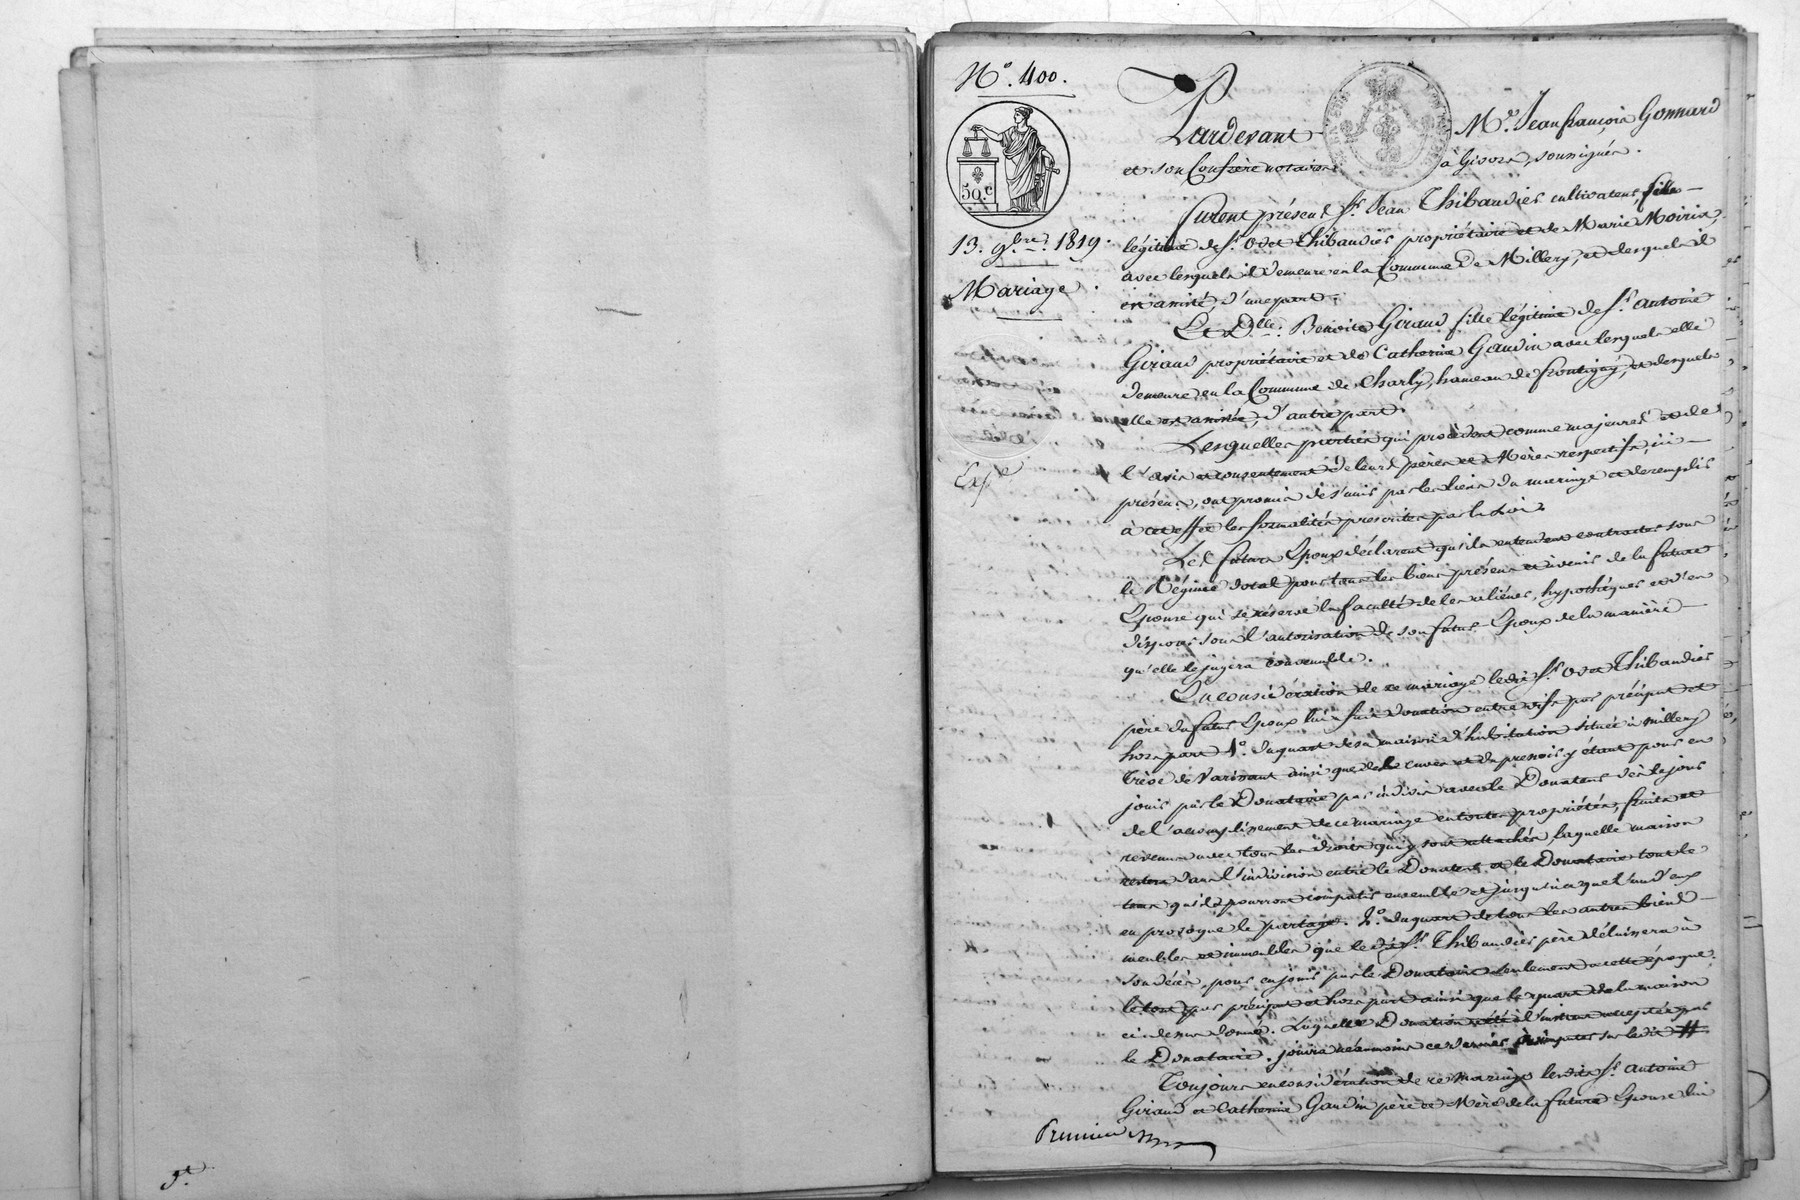 N.º 400.
50.c
13. 9.bre 1819.
Mariage
Exp.é
Pardevant M.e Jean françois Gonnard
et son Confrère notaires à Givors, soussignés.
Furent présens S.r Jean Thibaudier cultivateur, fils
légitime de S.r Odet Thibaudier propriétaire et de Marie Moirin,
avec lesquels il demeure en la Commune de Millery, et desquels il
est assisté, d'une part;
Et D.lle Benoite Giraud fille légitime de S.r Antoine
Giraud propriétaire et de Catherine Gaudin avec lesquels elle
demeure, en la Commune de Charly, hameau de frontigny, et desquels
elle est assistée, d'autre part.
Lesquelles parties qui procèdent comme majeures et de
l'avis et consentement de leurs pères et Mères respectifs, ici
présens, ont promis de s'unir par les liens du mariage et de remplir
à cet effet les formalités prescrites par la Loi.
Les futurs Epoux déclarent qu'ils entendent contracter sous
le Régime dotal pour tous les biens présens et avenir de la future
Epouse qui se réserve la faculté de les aliéner, hypothéquer et d'en
disposer sous l'autorisation de son futur Epoux de la manière
qu'elle le jugera convenable.
En considération de ce mariage ledit S.r Odet Thibaudier
père du futur Epoux lui fait donation entre vifs par préciput et
hors part 1.º du quart de sa maison d'habitation située à Millery
ainsi que de la cuve et du pressoir y étant pour en
jouir par le Donataire par indivis avec le Donateur dès le jour
de l'accomplissement de ce mariage en toutes propriétés, fruits et
revenus avec tous les droits qui y sont attachés, laquelle maison
restera dans l'indivision entre le Donateur et le Donataire tout le
tems qu'ils pourront compatir ensemble et jusqu'à ce que l'un d'eux
en provoque le partage. 2.º du quart de tous les autres biens
meubles et immeubles que ledit S.r Thibaudier père délaissera à
son décès, pour en jouir par le Donataire seulement à cette époque,
le tout par préciput et hors part ainsi que le quart de la maison
ci dessus donné. Laquelle Donation a été à l'instant acceptée par
le Donataire. jouira néanmoins ce dernier
Toujours en considération de ce mariage lesdits S.r Antoine
Giraud et Catherine Gaudin père et Mère de la future Epouse lui